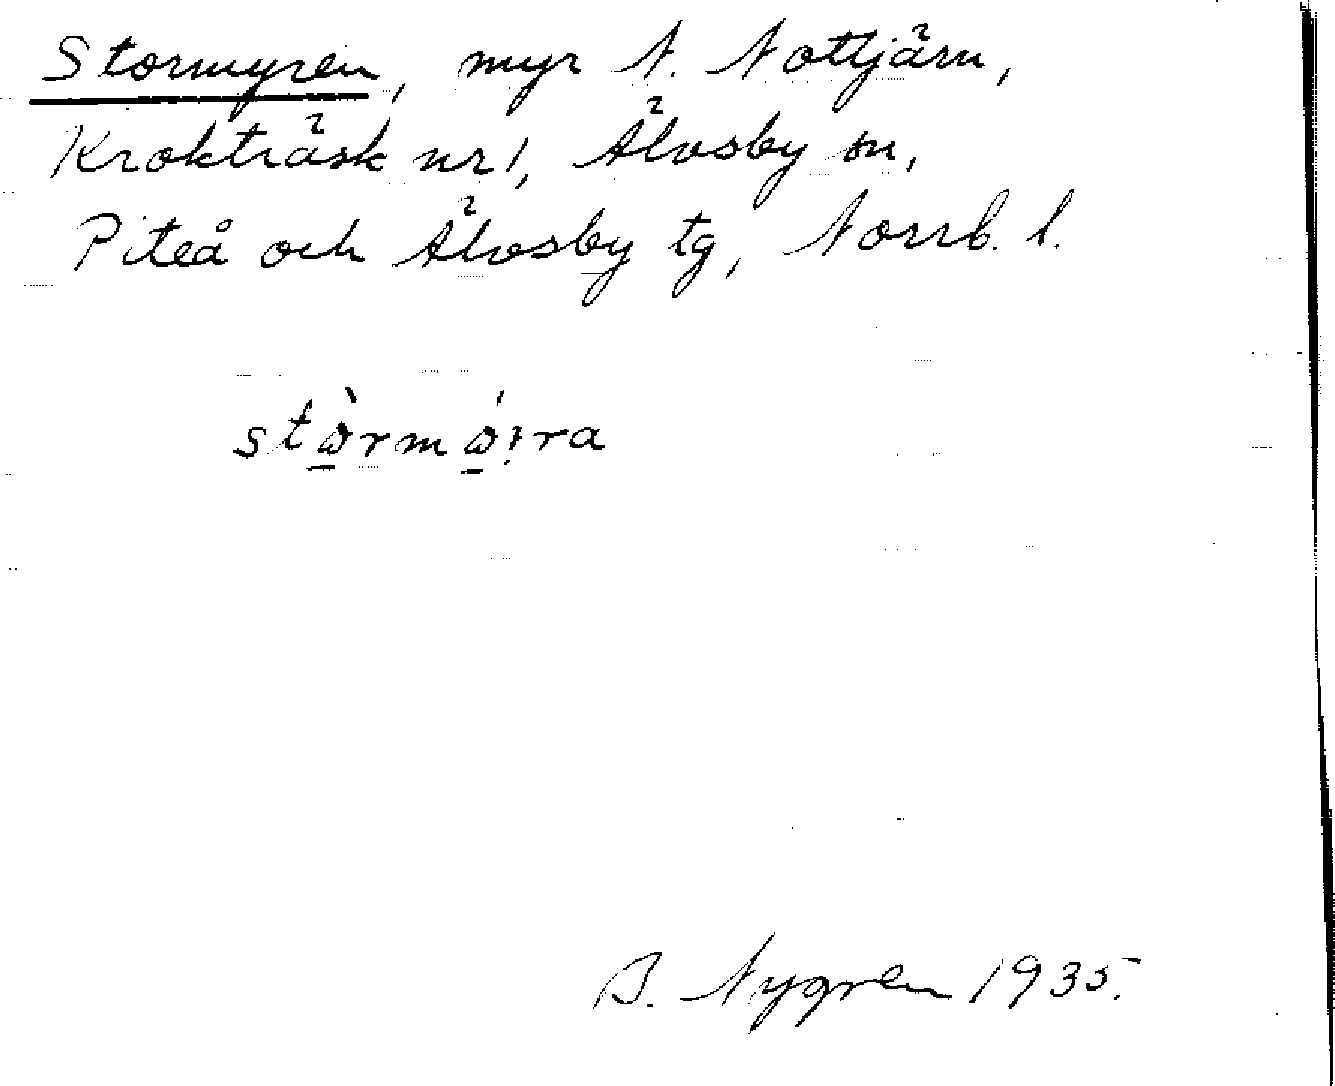 Stormyren, myr N. Nottjärn,
Krokträsk nr 1, Älvsby sn,
Piteå och Älvsby tg, Norrb. l.
stὼ̲rmώ̲i̩ra
B. Nygren 1935.